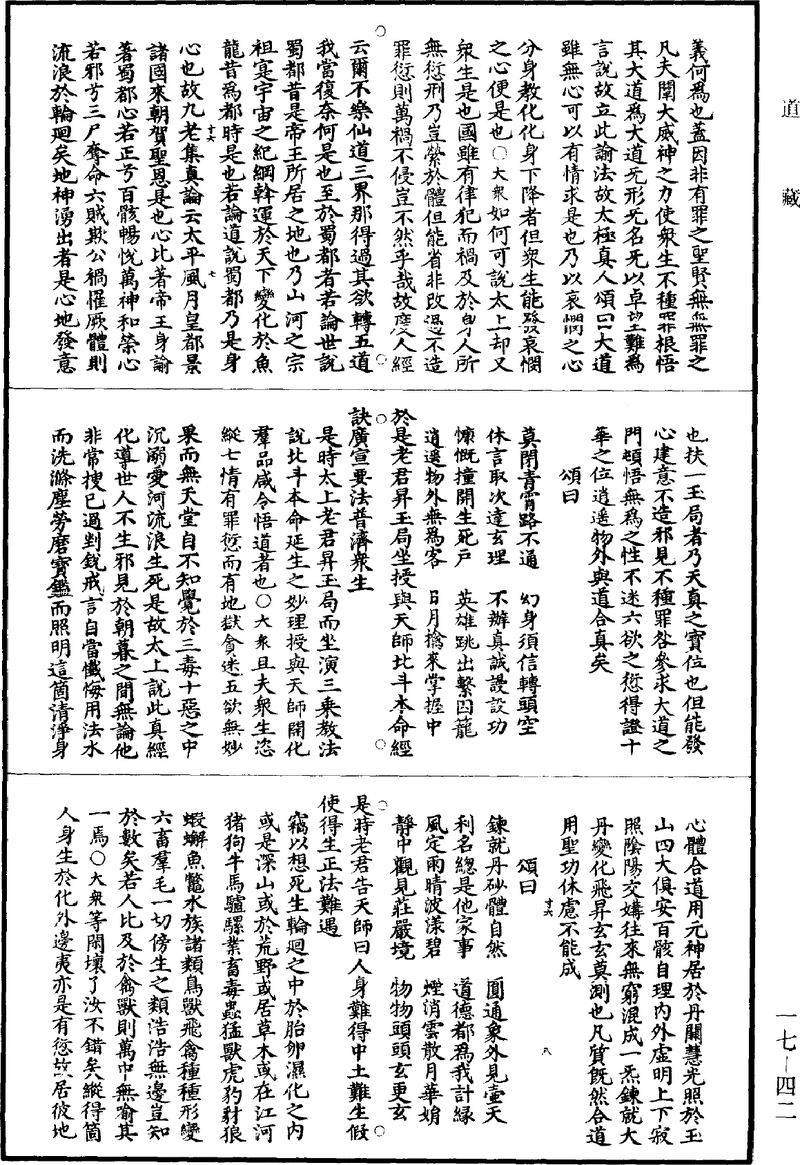 道藏
義何為也蓋因非有罪之聖賢無無罪之
凡夫闡大威神之力使衆生不種罪根悟
其大道為大道无形无名无以卓望難為
言說故立此諭法故太極真人頌曰大道
雖無心可以有情求是也乃以哀憫之心
分身教化化身下降者但衆生能發哀憫
之心便是也○大衆如何可說太上却又
衆生是也國雖有律犯而禍及於身人所
無愆刑乃豈縈於體但能省非改過不造
罪愆則萬禍不侵豈不然乎哉故度人經
云爾不樂仙道三界那得過其欲轉五道
我當復奈何是也至於蜀都者若論世説
蜀都昔是帝王所居之地也乃山河之宗
祖寔宇宙之紀綱斡運於天下變化於魚
龍昔為都時是也若論道説蜀都乃是身
心也故九老集真論云太平風月皇都景
十六
七
諸國來朝賀聖恩是也心比著帝王身諭
著蜀都心若正兮百骸暢悅萬神和榮心
若邪兮三尸奪命六賊欺公禍罹厥體則
流浪於輪廻矣地神湧出者是心地發意
也扶一玉局者乃天真之寶位也但能發
心建意不造邪見不種罪咎參求大道之
門頓悟無為之性不迷六欲之愆得證十
華之位逍遥物外與道合真矣
頌曰
莫閉青霄路不通　幻身須信轉頭空
休言取次達玄理　不辦真誠謾設功
慷慨撞開生死戶　英雄跳出繫囚籠
逍遥物外無為客　日月擒來掌握中
於是老君昇玉局坐授與天師北斗本命經
訣廣宣要法普濟衆生
是時太上老君昇玉局而坐演三乘教法
說北斗本命延生之妙理授與天師開化
羣品咸令悟道者也○大衆且夫衆生恣
縱七情有罪愆而有地獄貪迷五欲無妙
果而無天堂自不知覺於三毒十惡之中
沉溺愛河流浪生死是故太上說此真經
化導世人不生邪見於朝暮之間無論他
非常搜已過劃銳戒言自當懺悔用法水
而洗滌塵勞磨寶鑑而照明這箇清淨身
心體合道用元神居於丹闕慧光照於玉
山四大俱安百骸自理内外虛明上下寂
照陰陽交媾往來無窮混成一炁鍊就大
丹變化飛昇玄玄莫測也凡質既然合道
用聖功休慮不能成
十六
八
頌曰
鍊就丹砂體自然　圓通象外見壷天
利名總是他家事　道德都為我計緣
風定雨晴波漾碧　煙消雲散月華娟
靜中觀見莊嚴境　物物頭頭玄更玄
是時老君告天師曰人身難得中土難生假
使得生正法難遇
竊以想死生輪廻之中於胎卵濕化之内
或是深山或於荒野或居草木或在江河
猪狗牛馬驢騾業畜毒蟲猛獸虎豹豺狼
蝦蠏魚鱉水族諸類鳥獸飛禽種種形變
六畜羣毛一切傍生之類浩浩無邊豈知
於數矣若人比及於禽獸則萬中無喻其
一焉○大衆等閑壞了汝不錯矣縱得箇
人身生於化外邊夷亦是有愆故居彼地
一七－四二